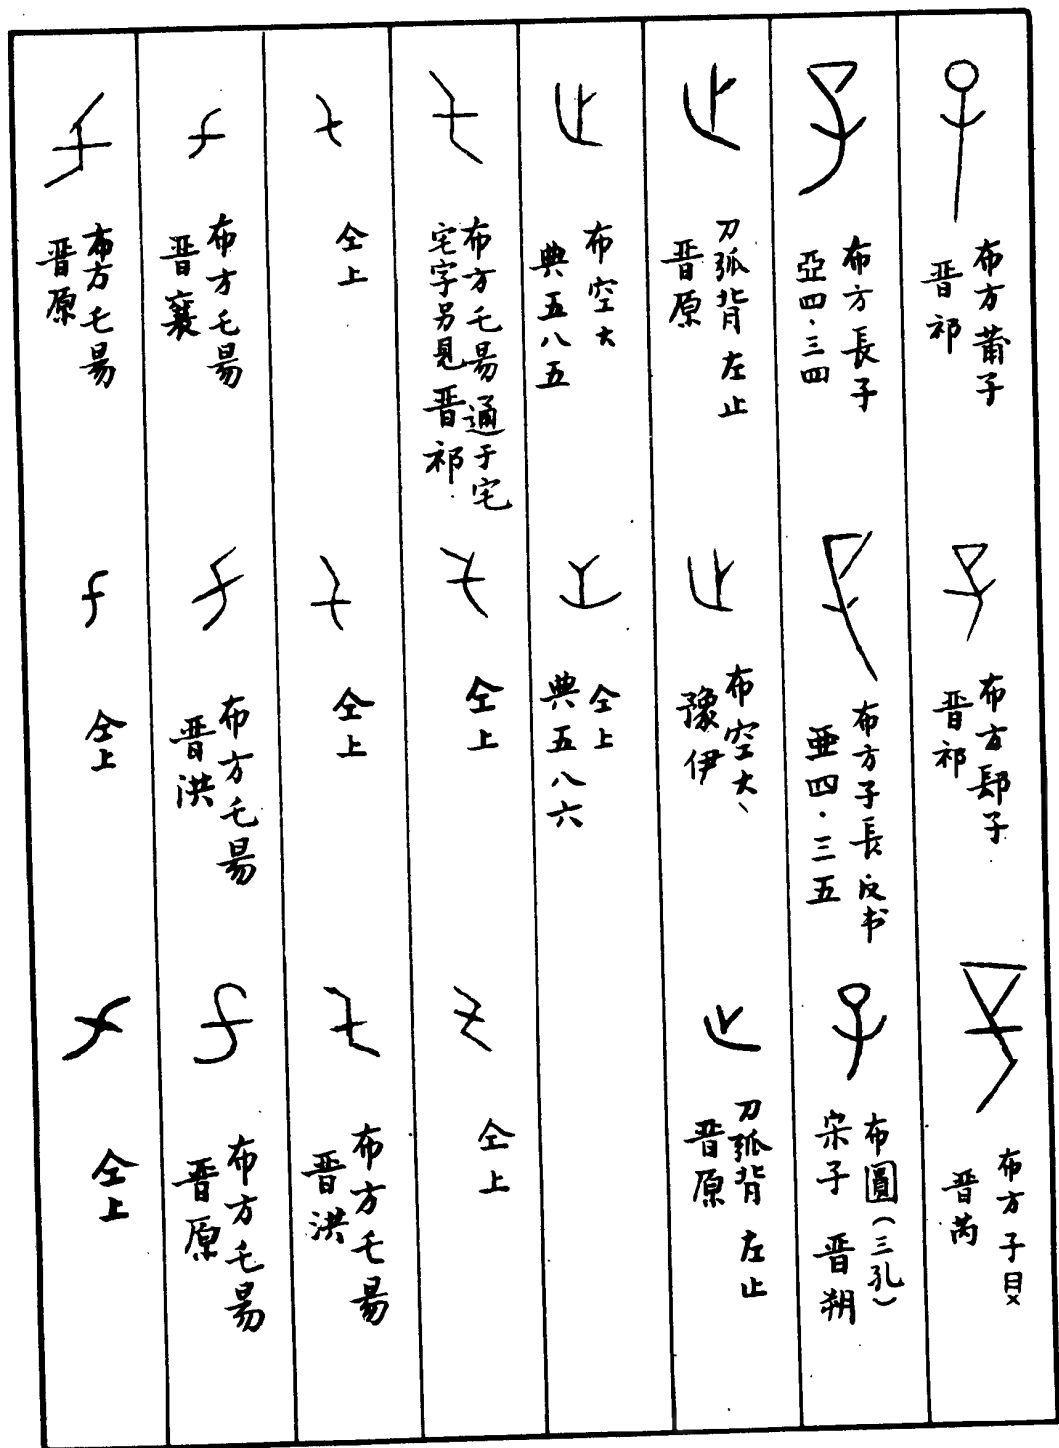 布方莆子
晋祁
布方郻子
晋祁
布方子㝵
晋芮
布方長子
亞四·三四
布方子長反书
亞四·三五
布圓（三孔）
宋子 晋朔
刀弧背 左止
晋原
布空大、
豫伊
刀弧背 左止
晋原
布空大
典五八五
仝上
典五八六
布方乇昜通于宅
宅字另見晋祁
仝上
仝上
仝上
仝上
布方乇昜
晋洪
布方乇昜
晋襄
布方乇昜
晋洪
布方乇昜
晋原
布方乇昜
晋原
仝上
仝上